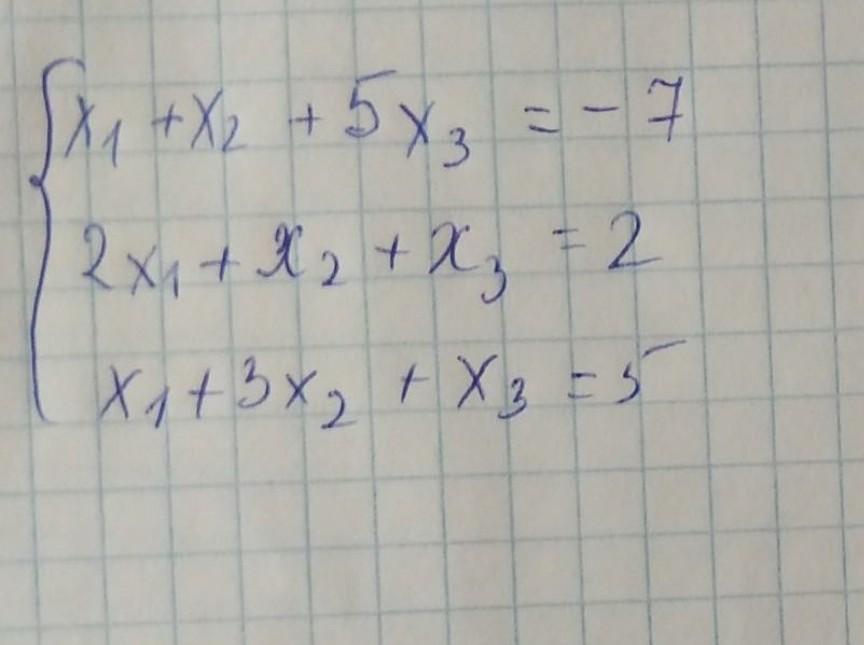 x₁ + x₂ + 5x₃ = -7
2x₁ + x₂ + x₃ = 2
x₁ + 3x₂ + x₃ = 5